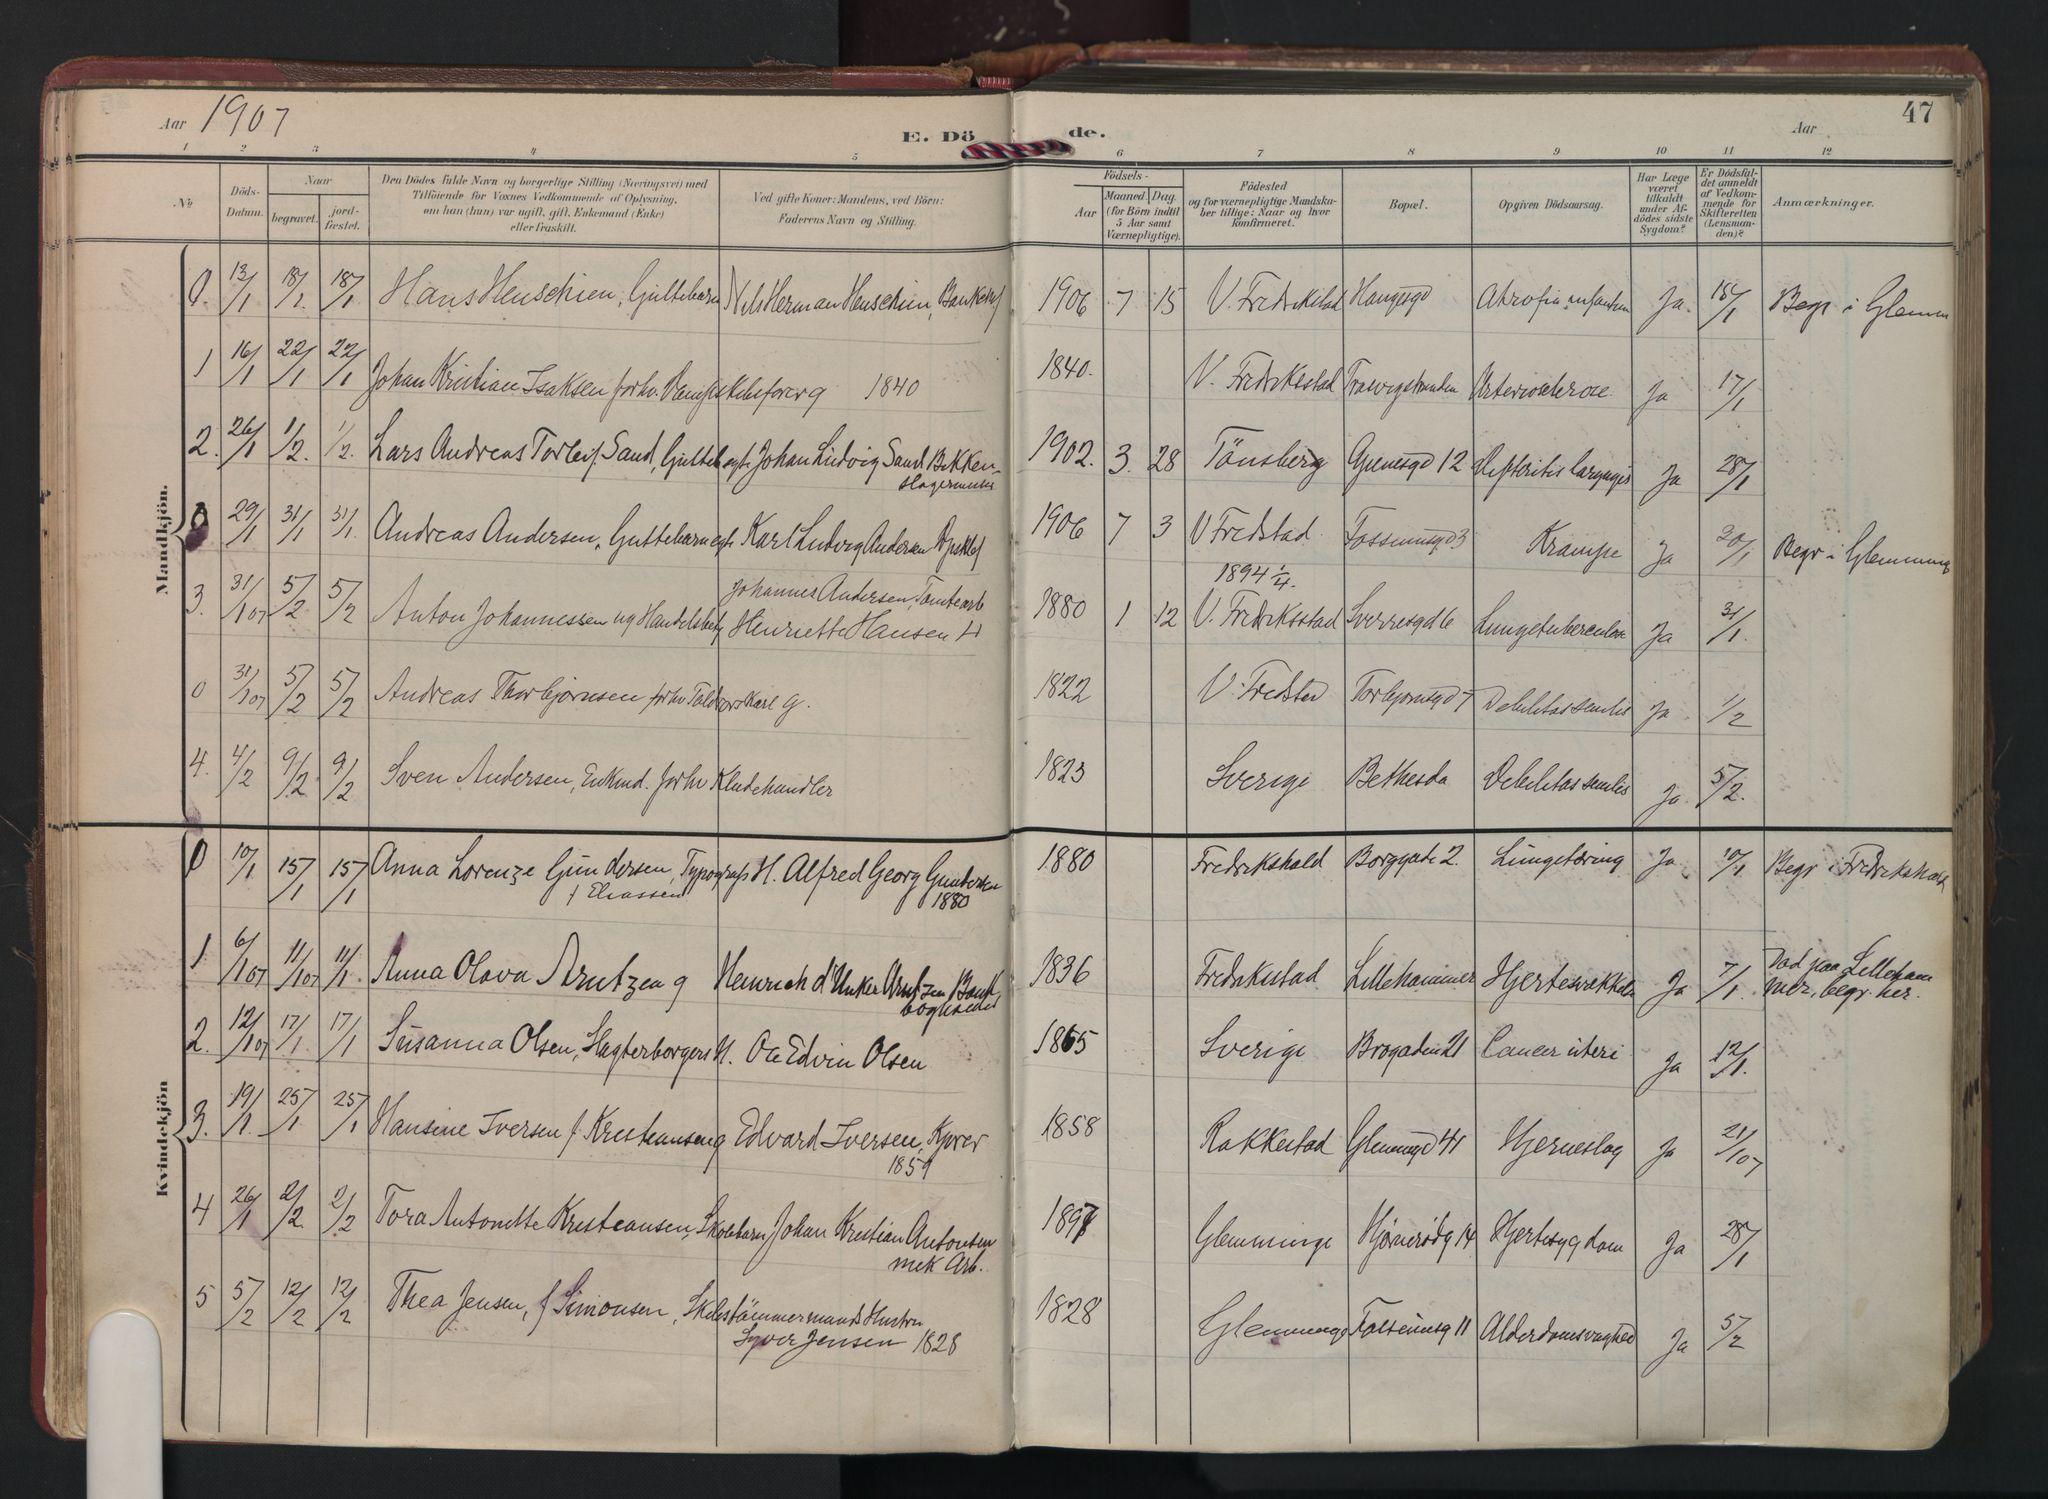 Aar 1907
E. Dö de.
Aar
47
1 2 3 4 5 6 7 8 9 10 11 12
No
Döds-Datum.
Naar
begravet.
jord-fæstet.
Den Dödes fulde Navn og borgerlige Stilling (Næringsvei) med
Tilföiende for Voxnes Vedkommende af Oplysning,
om han (hun) var ugift, gift, Enkemand (Enke)
eller fraskilt.
Ved gifte Koner: Mandens, ved Börn:
Faderens Navn og Stilling.
Födsels-
Aar
Maaned. Dag.
(for Börn indtil
5 Aar samt
Værnepligtige).
Födested
og for værnepligtige Mandsku-
ber tillige: Naar og hvor
konfirmeret.
Bopæl.
Opgiven Dödsaarsag.
Har Læge
været
tilkaldt
under Af-
dödes sidste
Sygdom?
Er Dödsfal-
det anmeldt
af Vedkom-
mende for
Skifteretten
(Lensman-
den)?
Anmærkninger.
Mandkjön.
0. 13/1 18/1. 18/1 Hans Henschien, Guttebarn Nils Herman Henschien, 1906 7 15 V. Fredrikstad Haugesgd Atrofia infantum Ja. 15/1 Begr i Glemm
1 16/1 22/1 22/1 Johan Kristian Isaksen forhv. skibsfører g 1840 1840. V. Fredrikstad Arteriosclerose Ja 17/1
2. 26/1 1/2. 1/2. Lars Andreas Torleif Sand, Gutteb egte Johan Ludvig Sand Blikken-
slagermester 1902. 3. 28 Tönsberg 12 Difteritis laryngis Ja 28/1
0 29/1 31/1 31/1. Andreas Andersen, Guttebarn egte Karl Ludvig Andersen 1906 7 3 V Fredstad 3 Krampe Ja 30/1 Begr i Glemminge
3. 31/1 07 5/2 5/2 Anton Johannessen ug Handelsbetj Johannes Andersen, Tomtearb
Henriette Hansen 1880 1 12 1894 1/4.
V. Fredriksstad Sverresgd 6 Lungetuberculose Ja 31/1.
0 31/1 07 5/2 5/2 Andreas Thorbjørnsen forhv g. 1822 V. Fredstad Torbjornsgd 7 Debilitas senilis Ja 1/2
4. 4/2 9/2 9/2 Sven Andersen, Enkmd. forhv Kludehandler 1823 Sverige Bethesda Debilitas senilis Ja. 5/2.
Kvindekjön
0 10/1 15/1 15/1 Anna Lorenze Gundersen, Typografs H. Alfred Georg Gundersen
f Eliassen 1880 1880 Fredrikshald Borggade 2. Lungetæring Ja 10/1 Begr i Fredrikshald
1 6/1 07 11/1 07 11/1 Anna Olava Arntzen g Heinrich d'Unker Arntzen Bank
bogholder 1836 Fredrikstad Lillehammer Hjertesvækkelse Ja 7/1. Död paa Lilleham
mer, begr. her.
2. 12/1 07 17/1. 17/1 Susanna Olsen, Slagterborgers H. Ole Edvin Olsen 1865 Sverige Brogaden 21 Cancer uteri Ja 12/1.
3. 19/1. 25/1 25/1 Hansine Iversen f Kristiansen g Edvard Iversen, Kjører
1859 1858 Rakkestad Glemmgd 41 Hjerneslag Ja 21/1 07
4 26/1 2/2. 2/2 Tora Antonette Kristiansen, Skolebarn Johan Kristian Antonsen
mek Arb. 1897 Glemminge 14 Hjertesygdom Ja 28/1
5 5/2 12/2 12/2 Thea Jensen, f Simonsen, Skibstömmermands Hustru
Syver Jensen 1828 1828 Glemminge 11 Alderdomssvaghed Ja 5/2